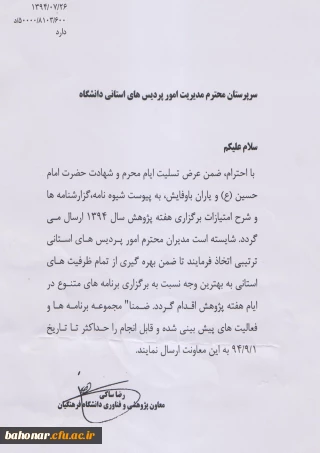 ۱۳۹۴/۰۷/۲۶
۵۰۰۰۰/۸۱۰۳/۶۰۰/د
دارد
سرپرستان محترم مدیریت امور پردیس های استانی دانشگاه
سلام علیکم
با احترام، ضمن عرض تسلیت ایام محرم و شهادت حضرت امام
حسین (ع) و یاران باوفایش، به پیوست شیوه نامه،گزارشنامه ها
و شرح امتیازات برگزاری هفته پژوهش سال ۱۳۹۴ ارسال مـی
گردد. شایسته است مدیران محترم امور پـردیس هـای اسـتانی
ترتیبی اتخاذ فرمایند تا ضمن بهره گیری از تمام ظرفیت هـای
استانی به بهترین وجه نسبت به برگزاری برنامه های متنـوع در
ایام هفته پژوهش اقـدام گـردد. ضـمنا" مجموعـه برنامـه هـا و
فعالیت های پیش بینی شده و قابل انجام را حـداکثر تـا تـاریخ
۹۴/۹/۱ به این معاونت ارسال نمایند.
رضا ساکی
معاون پژوهشی و فناوری دانشگاه فرهنگیان
bahonar.cfu.ac.ir